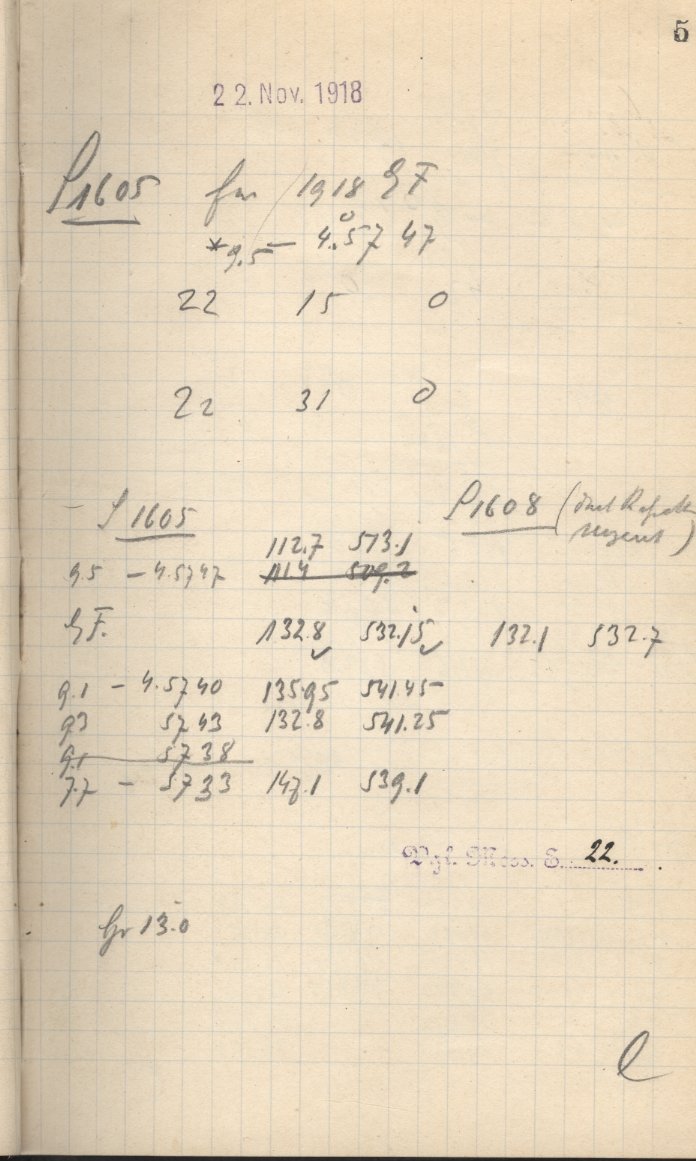 5
22. Nov. 1918
P1605 für 1918 EF
*9.5 — 4.°57 47
22 15 0
22 31 0
P 1605 P1608
112.7 513.1
9.5 — 4.5747 111.4 509.2
EF. 132.8 532.15 132.1 532.7
9.1 — 4.5740 135.95 541.45
93 5743 132.8 541.25
9.1 5738
7.7 — 5733 147.1 539.1
Vgl. Mess. S. 22.
Gr 13.0